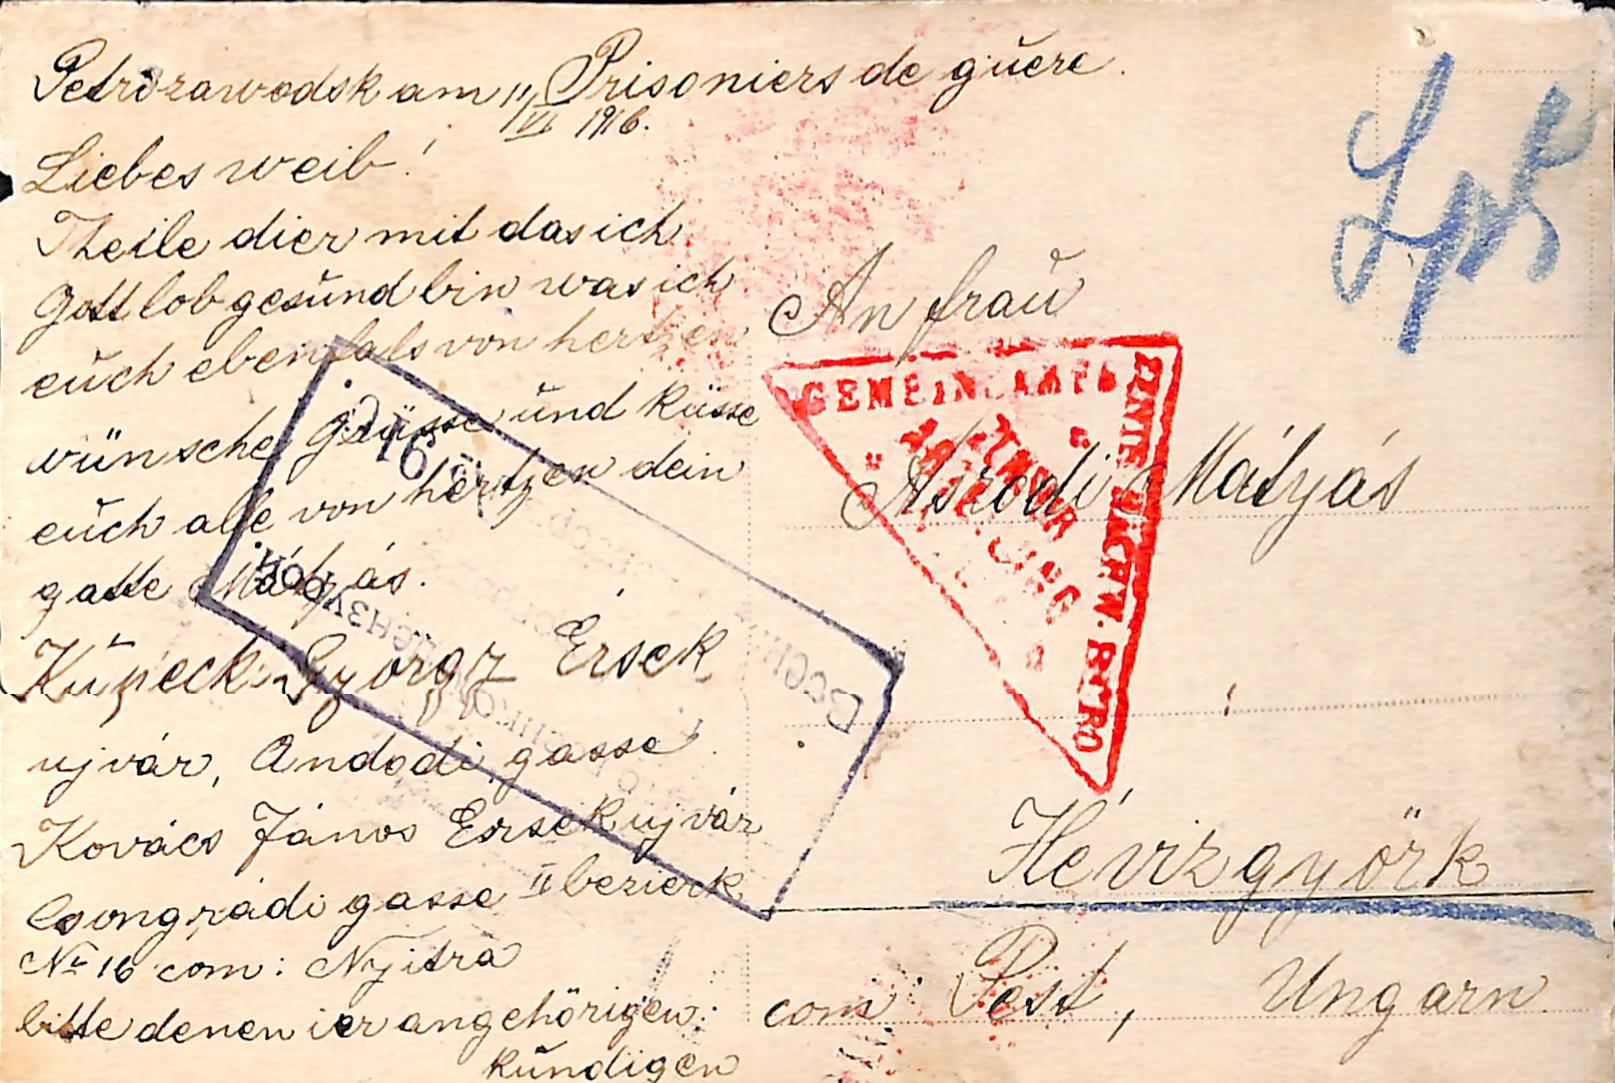 Petrozawodsk am 11/VI 1916.
Prisoniers de guere.
Liebes weib!
Theile dier mit das ich
Gott lob gesund bin was ich
euch ebenfals von hertzen
wünsche Grüsse und küsse
euch alle von hertzen dein
gatte Mátyás.
György Érsek
ujvár, Andodi gasse
Kovács János Ersekujvár
Csongrádi gasse II bezierk
No 16 com: Nyitra
bitte denen ier angehörigen
kündigen
An frau
Mátyás
Hévizgyörk
com Pest, Ungarn
GEMEINSAMES
ZENTR. NACHW. BÜRO
ZENSUR